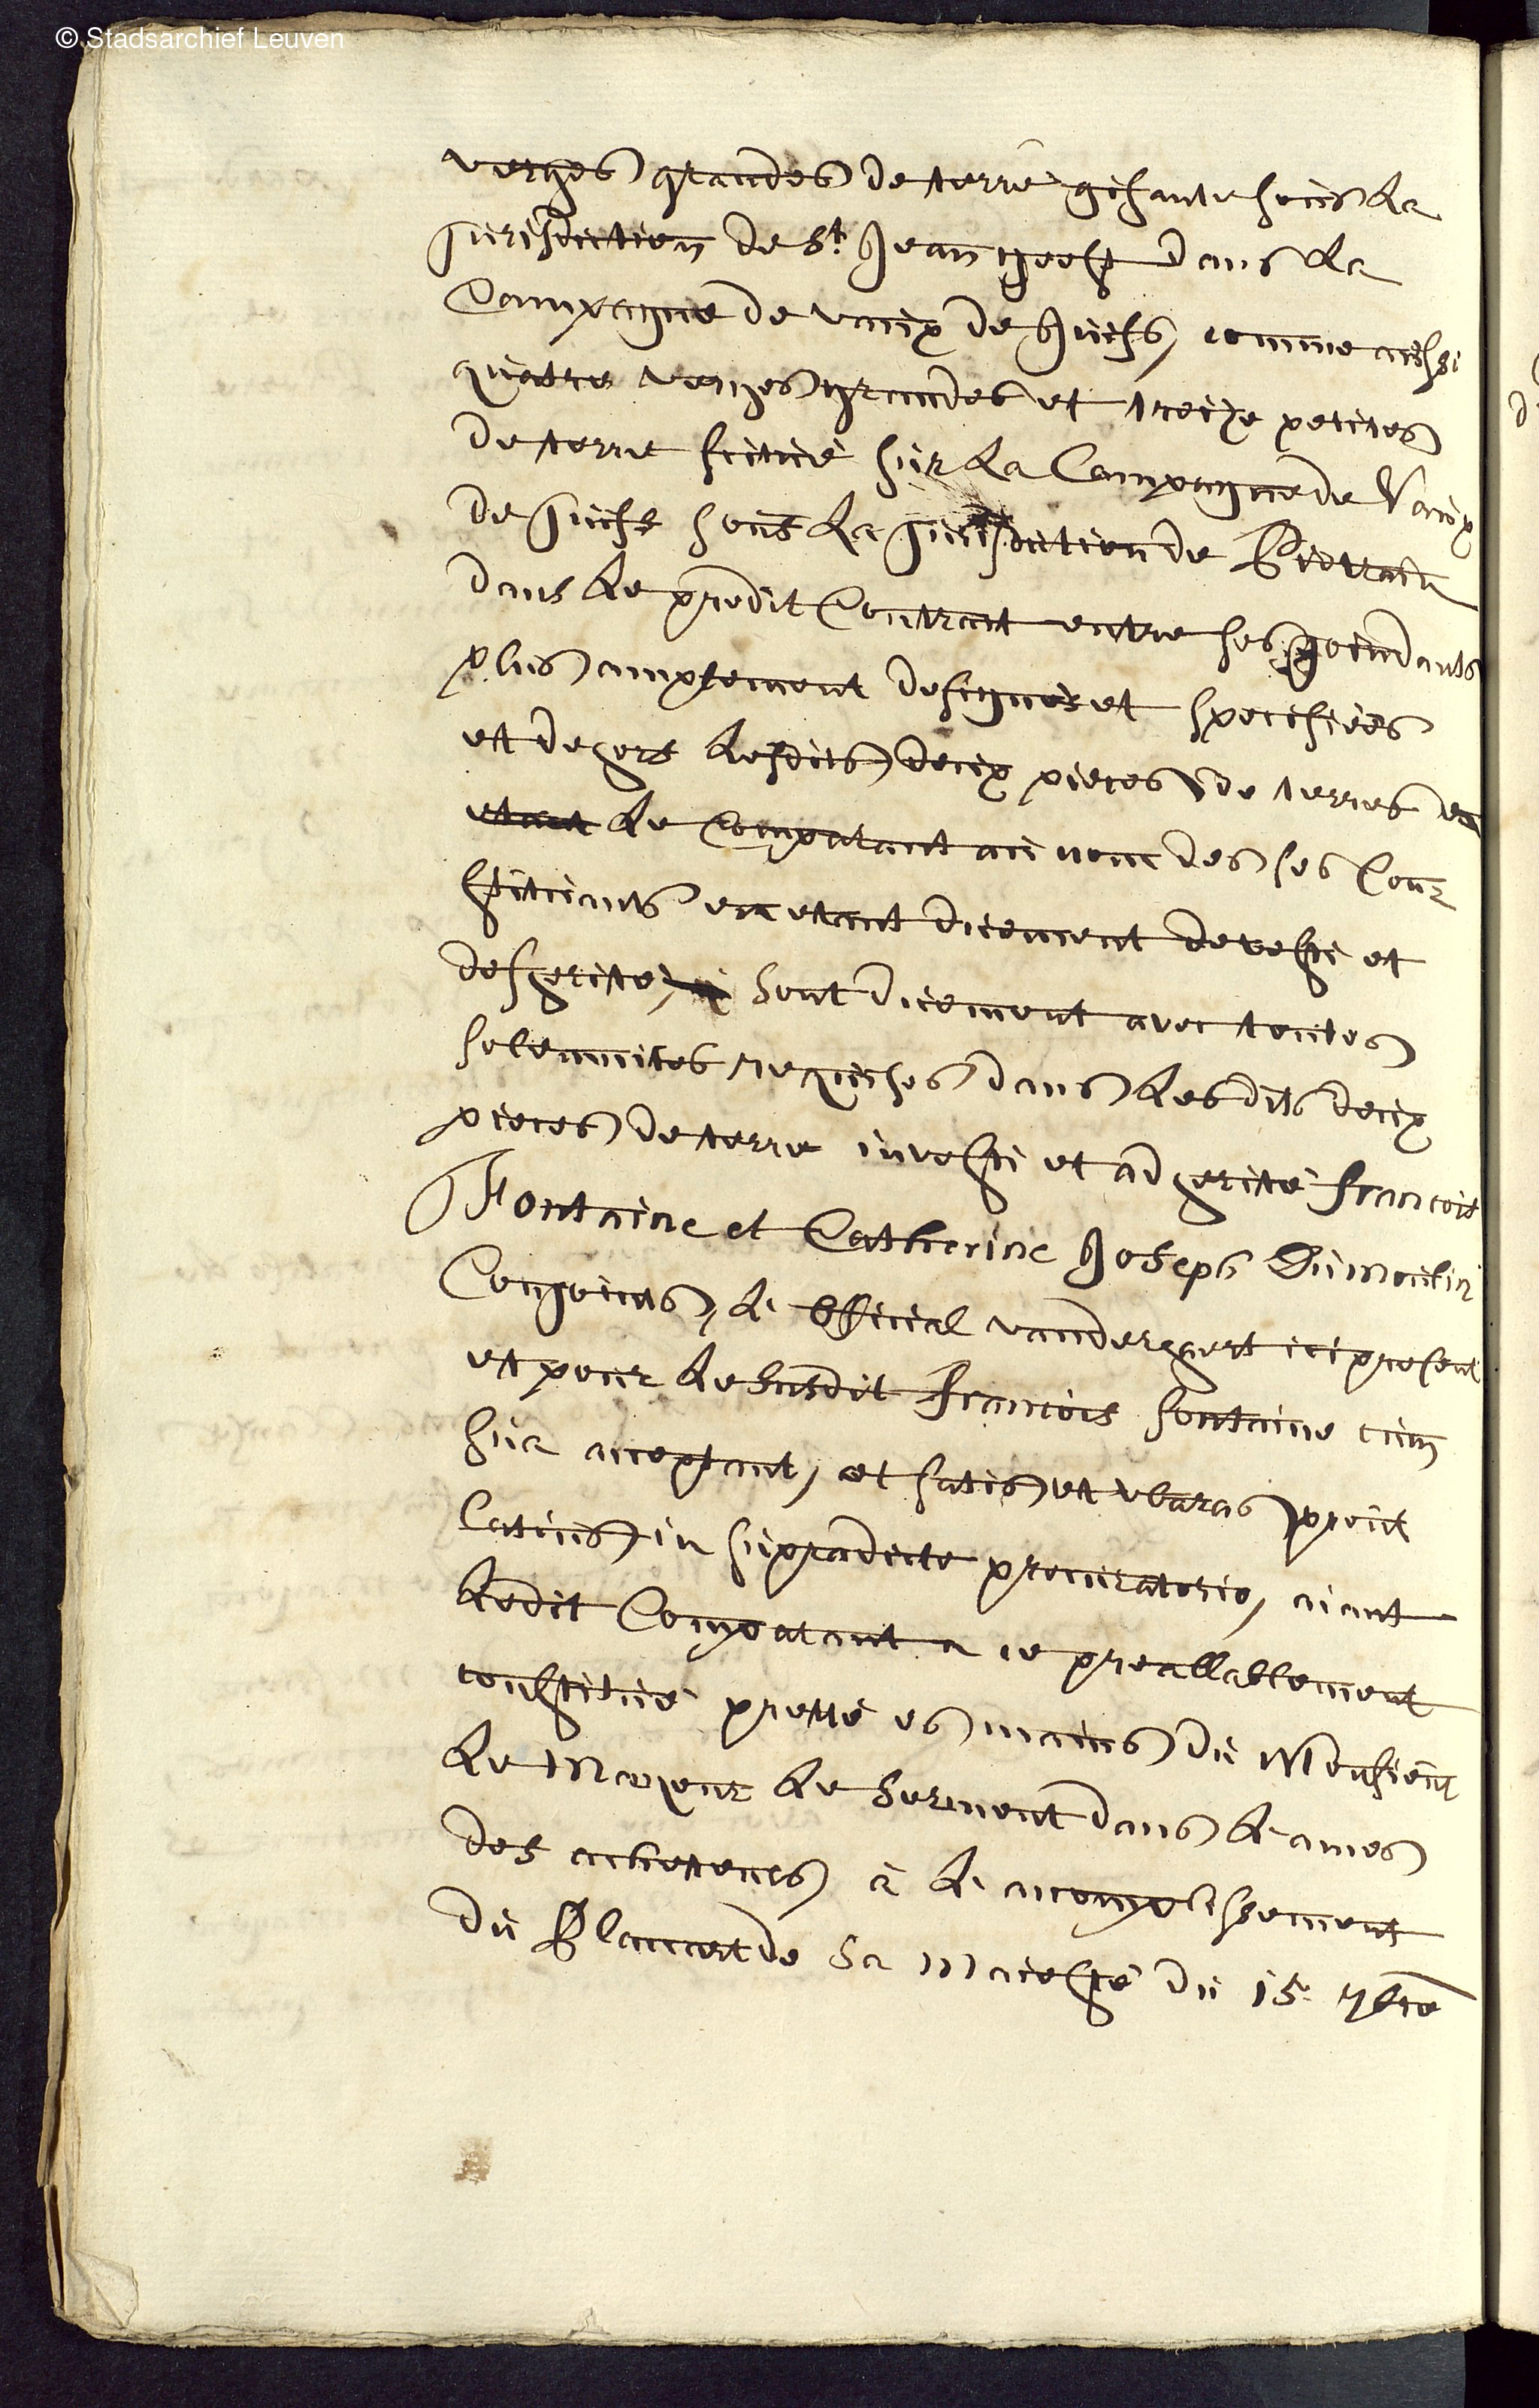 © Stadsarchief Leuven
verges grandes de terre gisante soùs la
jurisdiction de St Jean geest dans la
Campagne de vaùx de huist, comme aùssi
quatre verges grandes et treize petites
de terre sitùé sùr la Campagne de Vaùx
de huist soùs la jùrisdiction de Pietrain
dans le predit Contract entre ses joindants
plus amplement designes et specifiées
et de hors lesdits deùx pieces de terres en
etant le Comparant aù nom des ses Con
stitùants en etant dùement devesti et
desherité, sont dùement avec toùtes
solemnites reqùises dans lesdits deùx
pieces de terre investi et adherité francois
Fontaine et Catherine Joseph Dùmoùlin
Conjoints, l'official vanderhaert ici present
et poùr le susdit Francois fontaine cùm
sùa acceptant, et satis et waras proùt
latiùs in sùpradicto procùratorio, aiant
ledit Comparant a ce preallablement
constitùé pretté es mains dù Monsieùr
le Mayeur le serment dans l'ames
des acheteùrs à l'accomplissement
dù Placcart de Sa Majesté dù 15 7bre